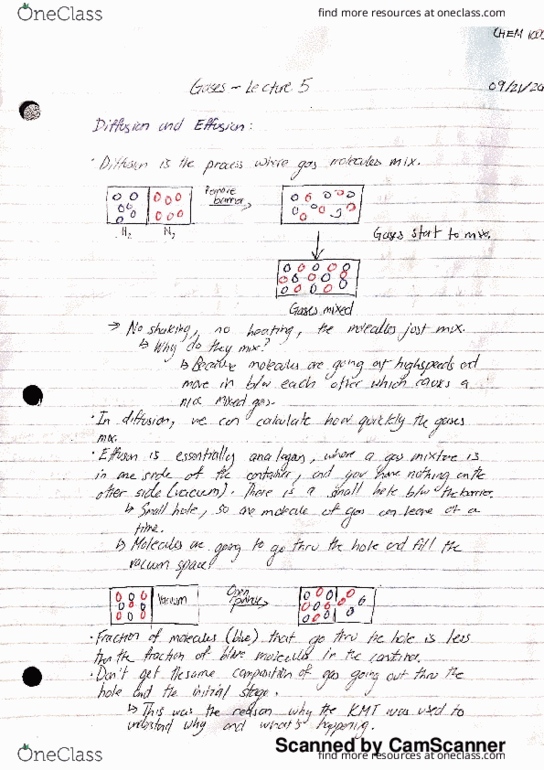 OneClass
find more resources at oneclass.com
CHEM 100
09/21/20
Gases ~ Lecture 5
Diffusion and Effusion:
· Diffusion is the process where gas molecules mix.
Remove barrier
H₂ N₂
Gases start to mix.
Gases mixed
→ No shaking, no heating, the molecules just mix.
↳ Why do they mix?
↳ Because molecules are going at highspeeds and
move in b/w each other which causes a
nice mixed gas.
· In diffusion, we can calculate how quickly the gases
mix.
· Effusion is essentially analogous, where a gas mixture is
in one side of the container, and you have nothing on the
other side (vacuum). There is a small hole b/w the barrier.
↳ Small hole, so one molecule of gas can leave at a
time.
↳ Molecules are going to go thru the hole and fill the
vacuum space
Vacuum
Open
· Fraction of molecules (blue) that go thru the hole is less
than the fraction of blue molecules in the container.
· Don't get the same composition of gas going out thru the
hole and the initial stage.
↳ This was the reason why the KMT was used to
understand why and what's happening.
Scanned by CamScanner
OneClass
find more resources at oneclass.com